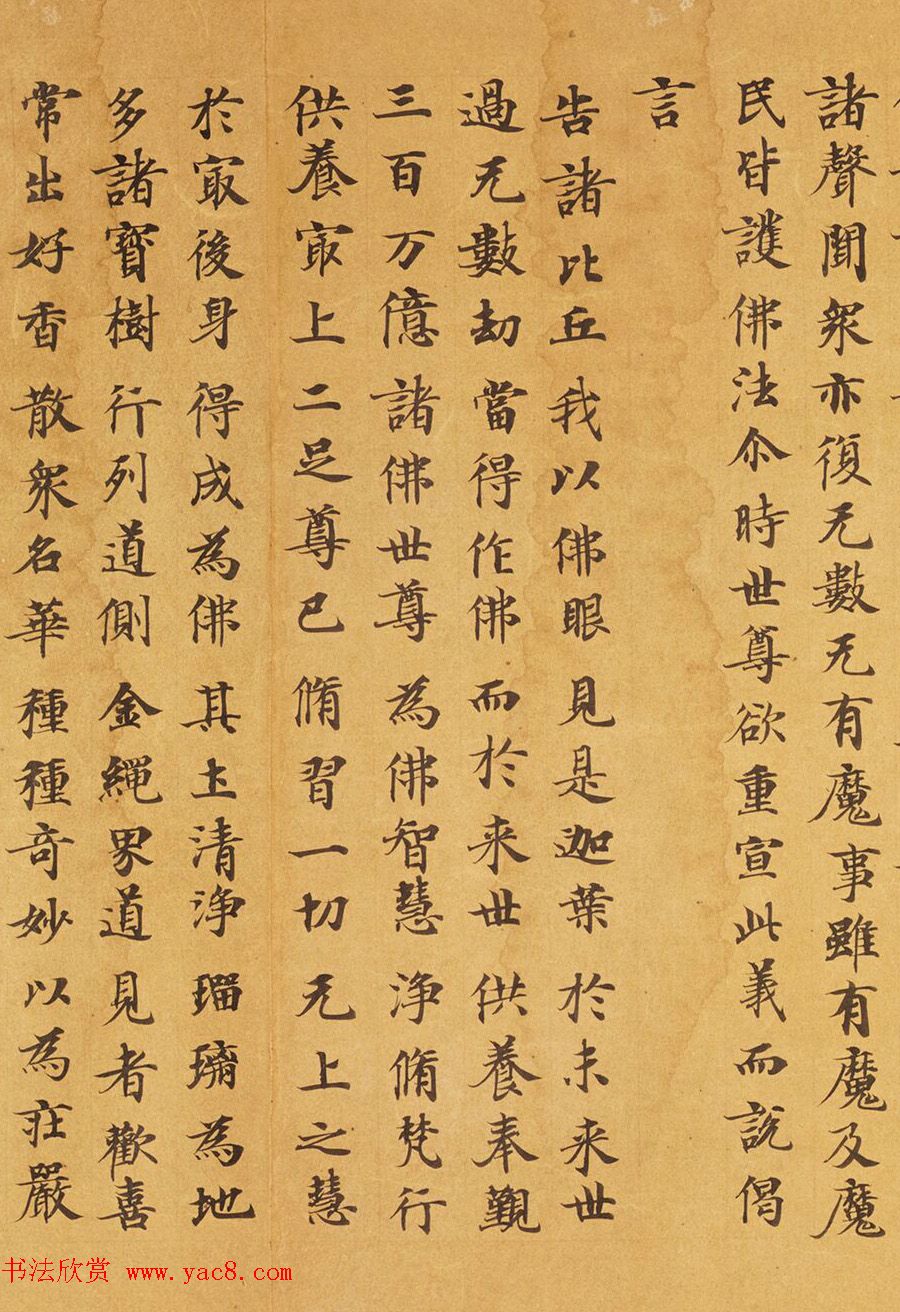 諸聲聞衆亦復无數无有魔事雖有魔及魔
民皆護佛法尒時世尊欲重宣此義而說偈
言
告諸比丘 我以佛眼 見是迦葉 於未来世
過无數劫 當得作佛 而於来世 供養奉覲
三百万億 諸佛世尊 為佛智慧 淨脩梵行
供養寂上 二足尊已 脩習一切 无上之慧
於寂後身 得成為佛 其土清淨 瑠璃為地
多諸寶樹 行列道側 金繩界道 見者歡喜
常出好香 散衆名華 種種奇妙 以為莊嚴
书法欣赏 www.yac8.com